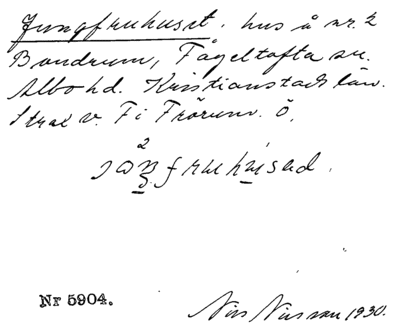 Jungfruhuset. hus å nr. 2
Bondrum, Fågeltofta sn.
Albo hd. Kristianstads län.
Strax v. F i Frörum. Ö.
Nr 5904.
Nils Nilsson 1930.